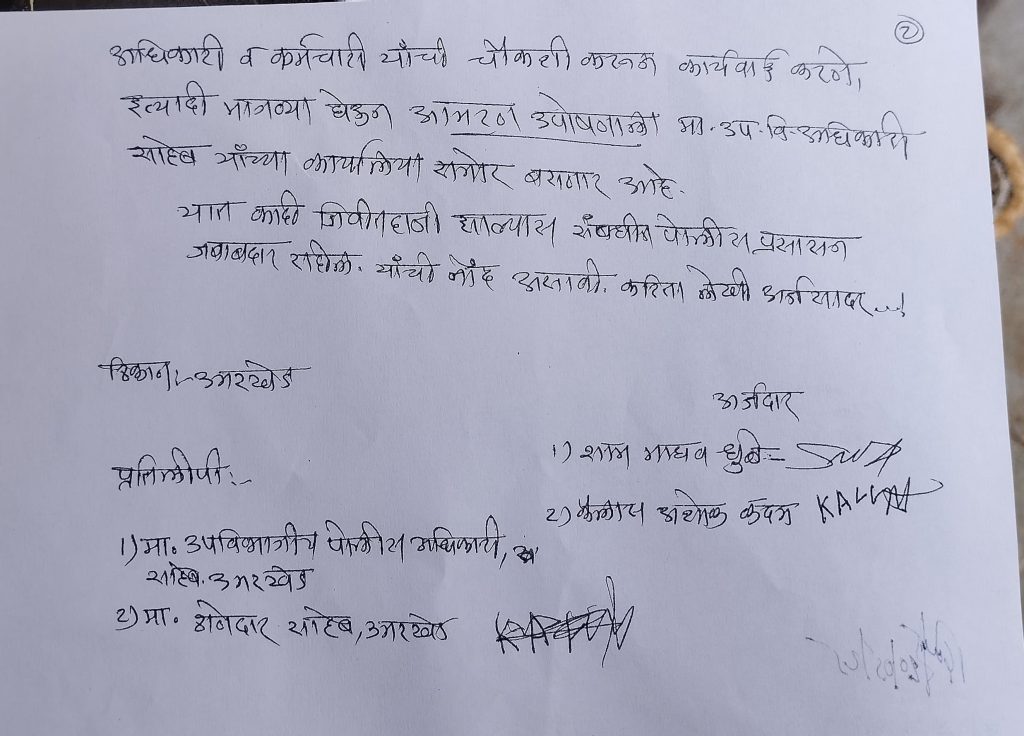 २
अधिकारी व कर्मचारी यांची चौकशी करून कार्यवाई करणे,
इत्यादी मागण्या घेऊन आमरण उपोषणाला मा. उप. वि. अधिकारी
साहेब यांच्या कार्यालया समोर बसणार आहे.
यात काही जिवीतहानी झाल्यास संबधीत पोलीस प्रसासन
जबाबदार राहील. यांची नोंद असावी. करिता लेखी अर्ज सादर...!
ठिकाण:- उमरखेड
अर्जदार
१) शाम माधव धुळे:-
२) कैलास अशोक कदम
प्रतिलीपी:-
१) मा. उपविभागीय पोलीस अधिकारी,
साहेब. उमरखेड
२) मा. ठाणेदार साहेब, उमरखेड